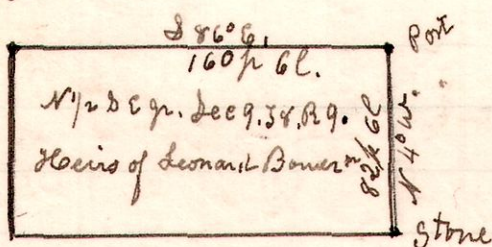 S 86° E,
160 p 6 l.
Post
N 1/2 S E qr. Sec 9. T 8. R 9.
Heirs of Leonard Bower
82 p 6 l
N 4° W.
Stone